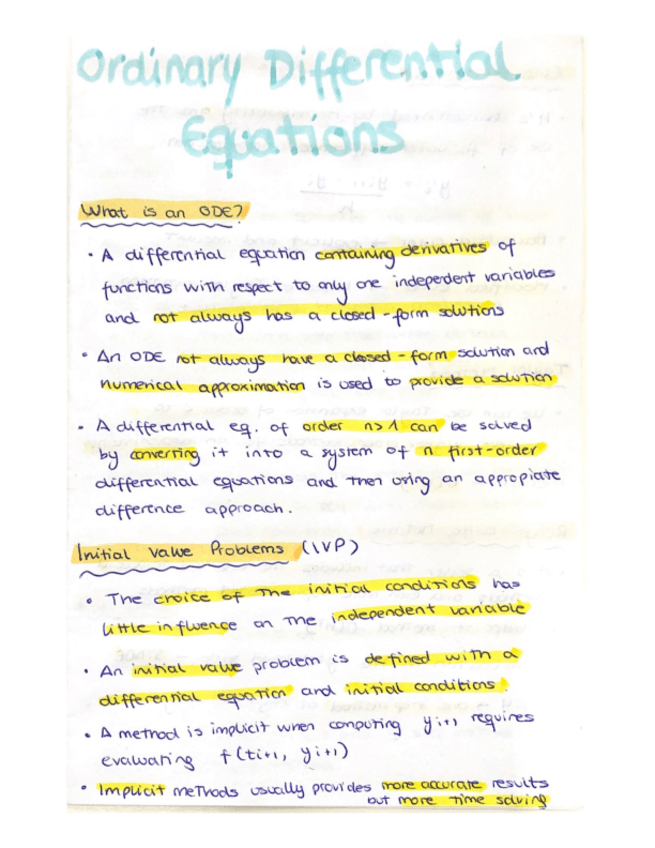 Ordinary Differential
Equations
What is an ODE?
• A differential equation containing derivatives of
functions with respect to only one indepedent variables
and not always has a closed-form solutions
• An ODE not always have a closed-form solution and
numerical approximation is used to provide a solution
• A differential eq. of order n>1 can be solved
by converting it into a system of n first-order
differential equations and then using an appropiate
difference approach.
Initial Value Problems (IVP)
• The choice of the initial conditions has
little influence on the independent variable
• An initial value problem is defined with a
differential equation and initial conditions.
• A method is implicit when computing yi+1 requires
evaluating f(ti+1, yi+1)
• Implicit methods usually provides more accurate results
but more time solving